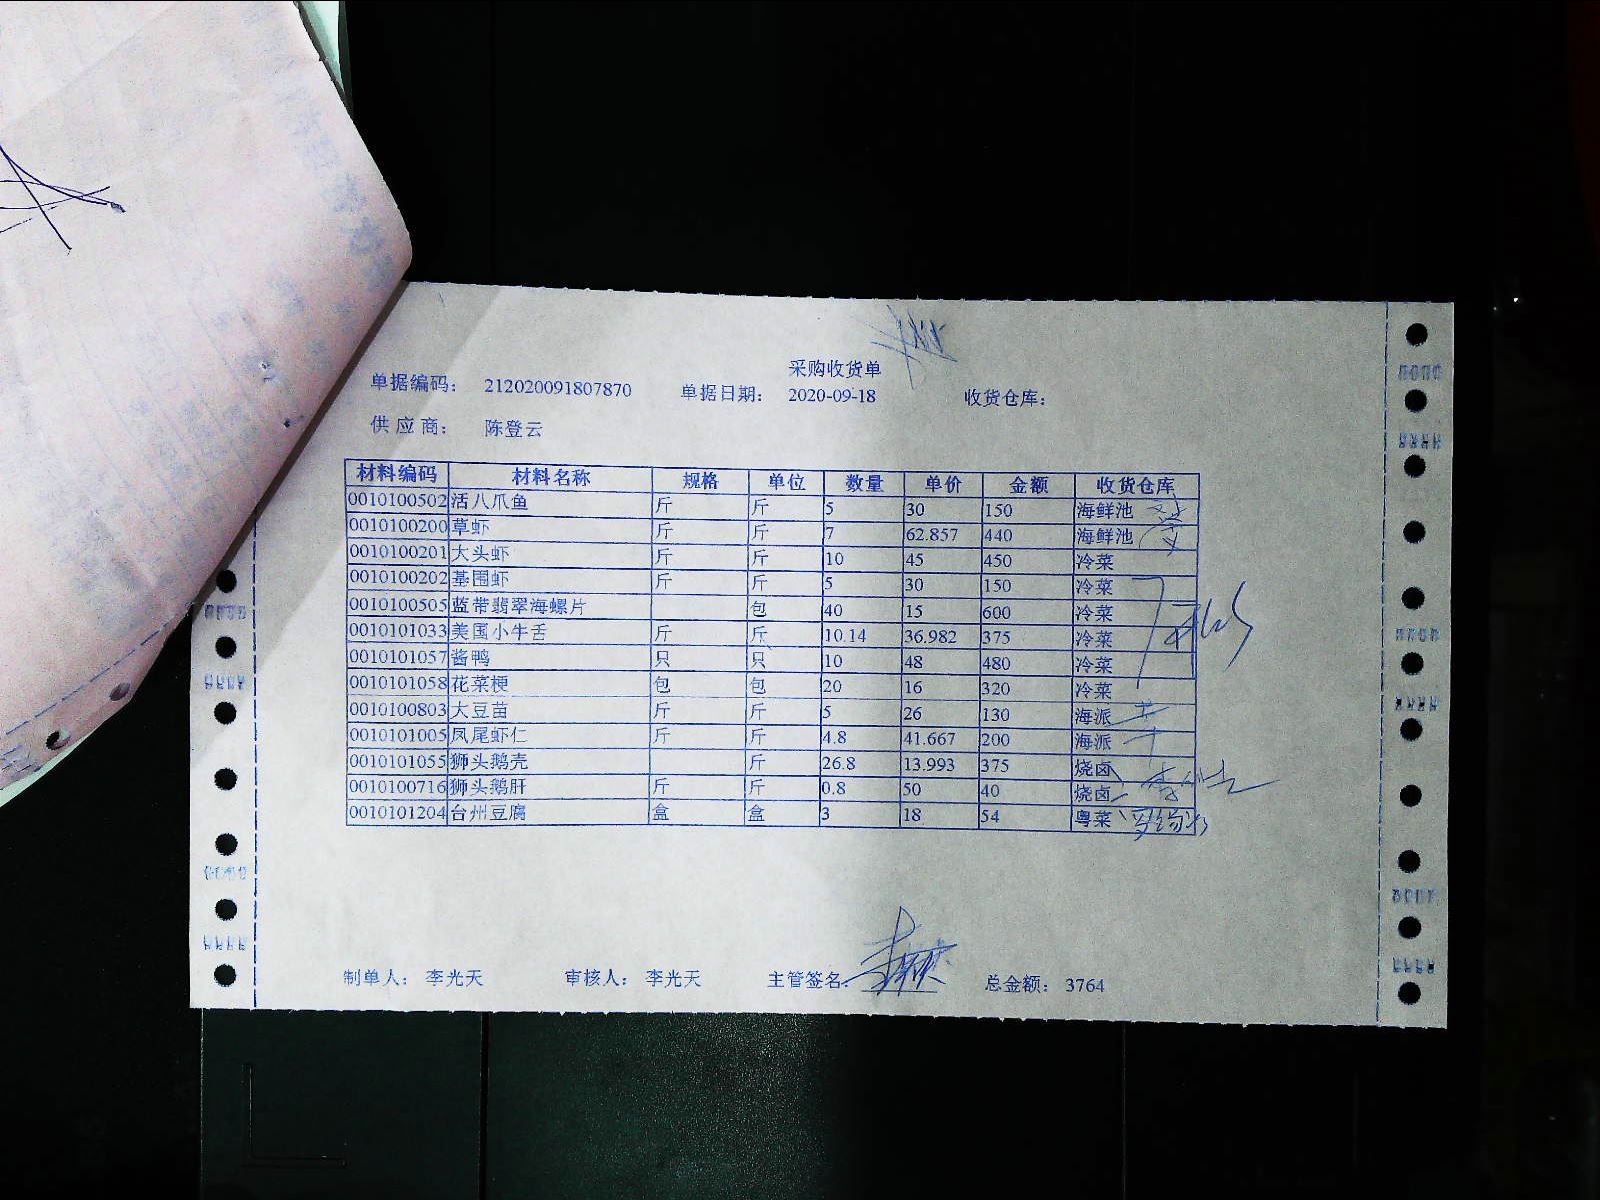 采购收货单
单据编码： 212020091807870 单据日期： 2020-09-18 收货仓库：
供应商： 陈登云
材料编码 材料名称 规格 单位 数量 单价 金额 收货仓库
0010100502 活八爪鱼 斤 斤 5 30 150 海鲜池
0010100200 草虾 斤 斤 7 62.857 440 海鲜池
0010100201 大头虾 斤 斤 10 45 450 冷菜
0010100202 基围虾 斤 斤 5 30 150 冷菜
0010100505 蓝带翡翠海螺片 包 40 15 600 冷菜
0010101033 美国小牛舌 斤 斤 10.14 36.982 375 冷菜
0010101057 酱鸭 只 只 10 48 480 冷菜
0010101058 花菜梗 包 包 20 16 320 冷菜
0010100803 大豆苗 斤 斤 5 26 130 海派
0010101005 凤尾虾仁 斤 斤 4.8 41.667 200 海派
0010101055 狮头鹅壳 斤 26.8 13.993 375 烧卤
0010100716 狮头鹅肝 斤 斤 0.8 50 40 烧卤
0010101204 台州豆腐 盒 盒 3 18 54 粤菜
制单人： 李光天 审核人： 李光天 主管签名： 总金额： 3764